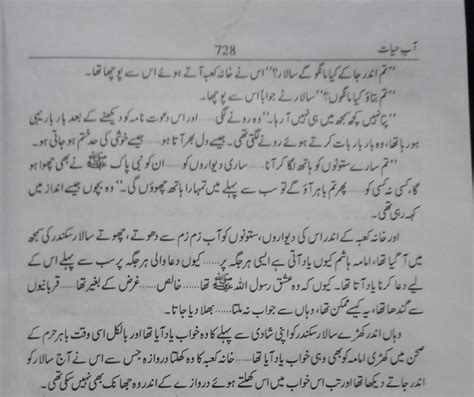 آبِ حیات 728
”تم اندر جا کے کیا مانگو گے سالار؟“ اس نے خانہ کعبہ آتے ہوئے اس سے پوچھا تھا۔
”تم بتاؤ کیا مانگوں؟“ سالار نے جواباً اس سے پوچھا۔
”پتا نہیں کچھ سمجھ میں ہی نہیں آ رہا۔“ وہ رونے لگی...... اور اس دعوت نامہ کو دیکھنے کے بعد بار بار یہی
ہو رہا تھا، وہ بار بار بات کرتے ہوئے رونے لگتی تھی۔ جیسے دل بھر آتا ہو...... جیسے خوشی کی حد ختم ہو جاتی ہو۔
”تم سارے ستونوں کو ہاتھ لگا کر آنا...... ساری دیواروں کو...... ان کو نبی پاک ﷺ نے بھی چھوا ہو
گا، کسی نہ کسی کو...... پھر تم باہر آؤ گے تو سب سے پہلے میں تمہارا ہاتھ چھوؤں گی۔“ وہ بچوں جیسے انداز میں
کہہ رہی تھی۔
اور خانہ کعبہ کے اندر اس کی دیواروں، ستونوں کو آبِ زم زم سے دھوتے، چھوتے سالار سکندر کی سمجھ
میں آ گیا تھا، امامہ ہاشم کیوں یاد آتی ہے ایسی ہر جگہ پر...... کیوں دعا والی ہر جگہ پر سب سے پہلے اس کے
لیے دعا کرنا یاد آتا تھا۔ کیوں کہ وہ عشقِ رسول اللہ ﷺ تھا...... خالص...... غرض کے بغیر تھا...... قربانیوں
سے گندھا تھا، یہ کیسے ممکن تھا، وہاں سے جواب نہ ملتا...... بھلا دیا جاتا۔
وہاں اندر کھڑے سالار سکندر کو اپنی شادی سے پہلے کا وہ خواب یاد آیا تھا اور بالکل اسی وقت باہر حرم کے
صحن میں کھڑی امامہ کو بھی وہی خواب یاد آیا تھا...... خانہ کعبہ کا وہ کھلتا دروازہ جس سے اس نے آج سالار کو
اندر جاتے دیکھا تھا اور تب اس خواب میں اس کھلتے ہوئے دروازے کے اندر وہ جھانک بھی نہیں سکی تھی۔